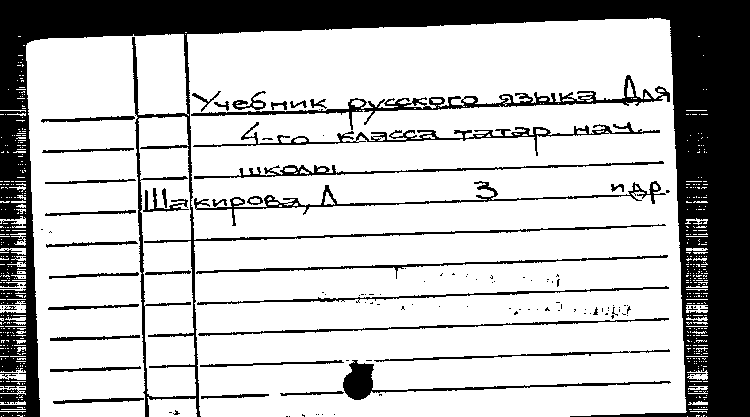 Учебник русского языка. Для
4-го класса татар. нач.
школы.
Шакирова, Л З и др.